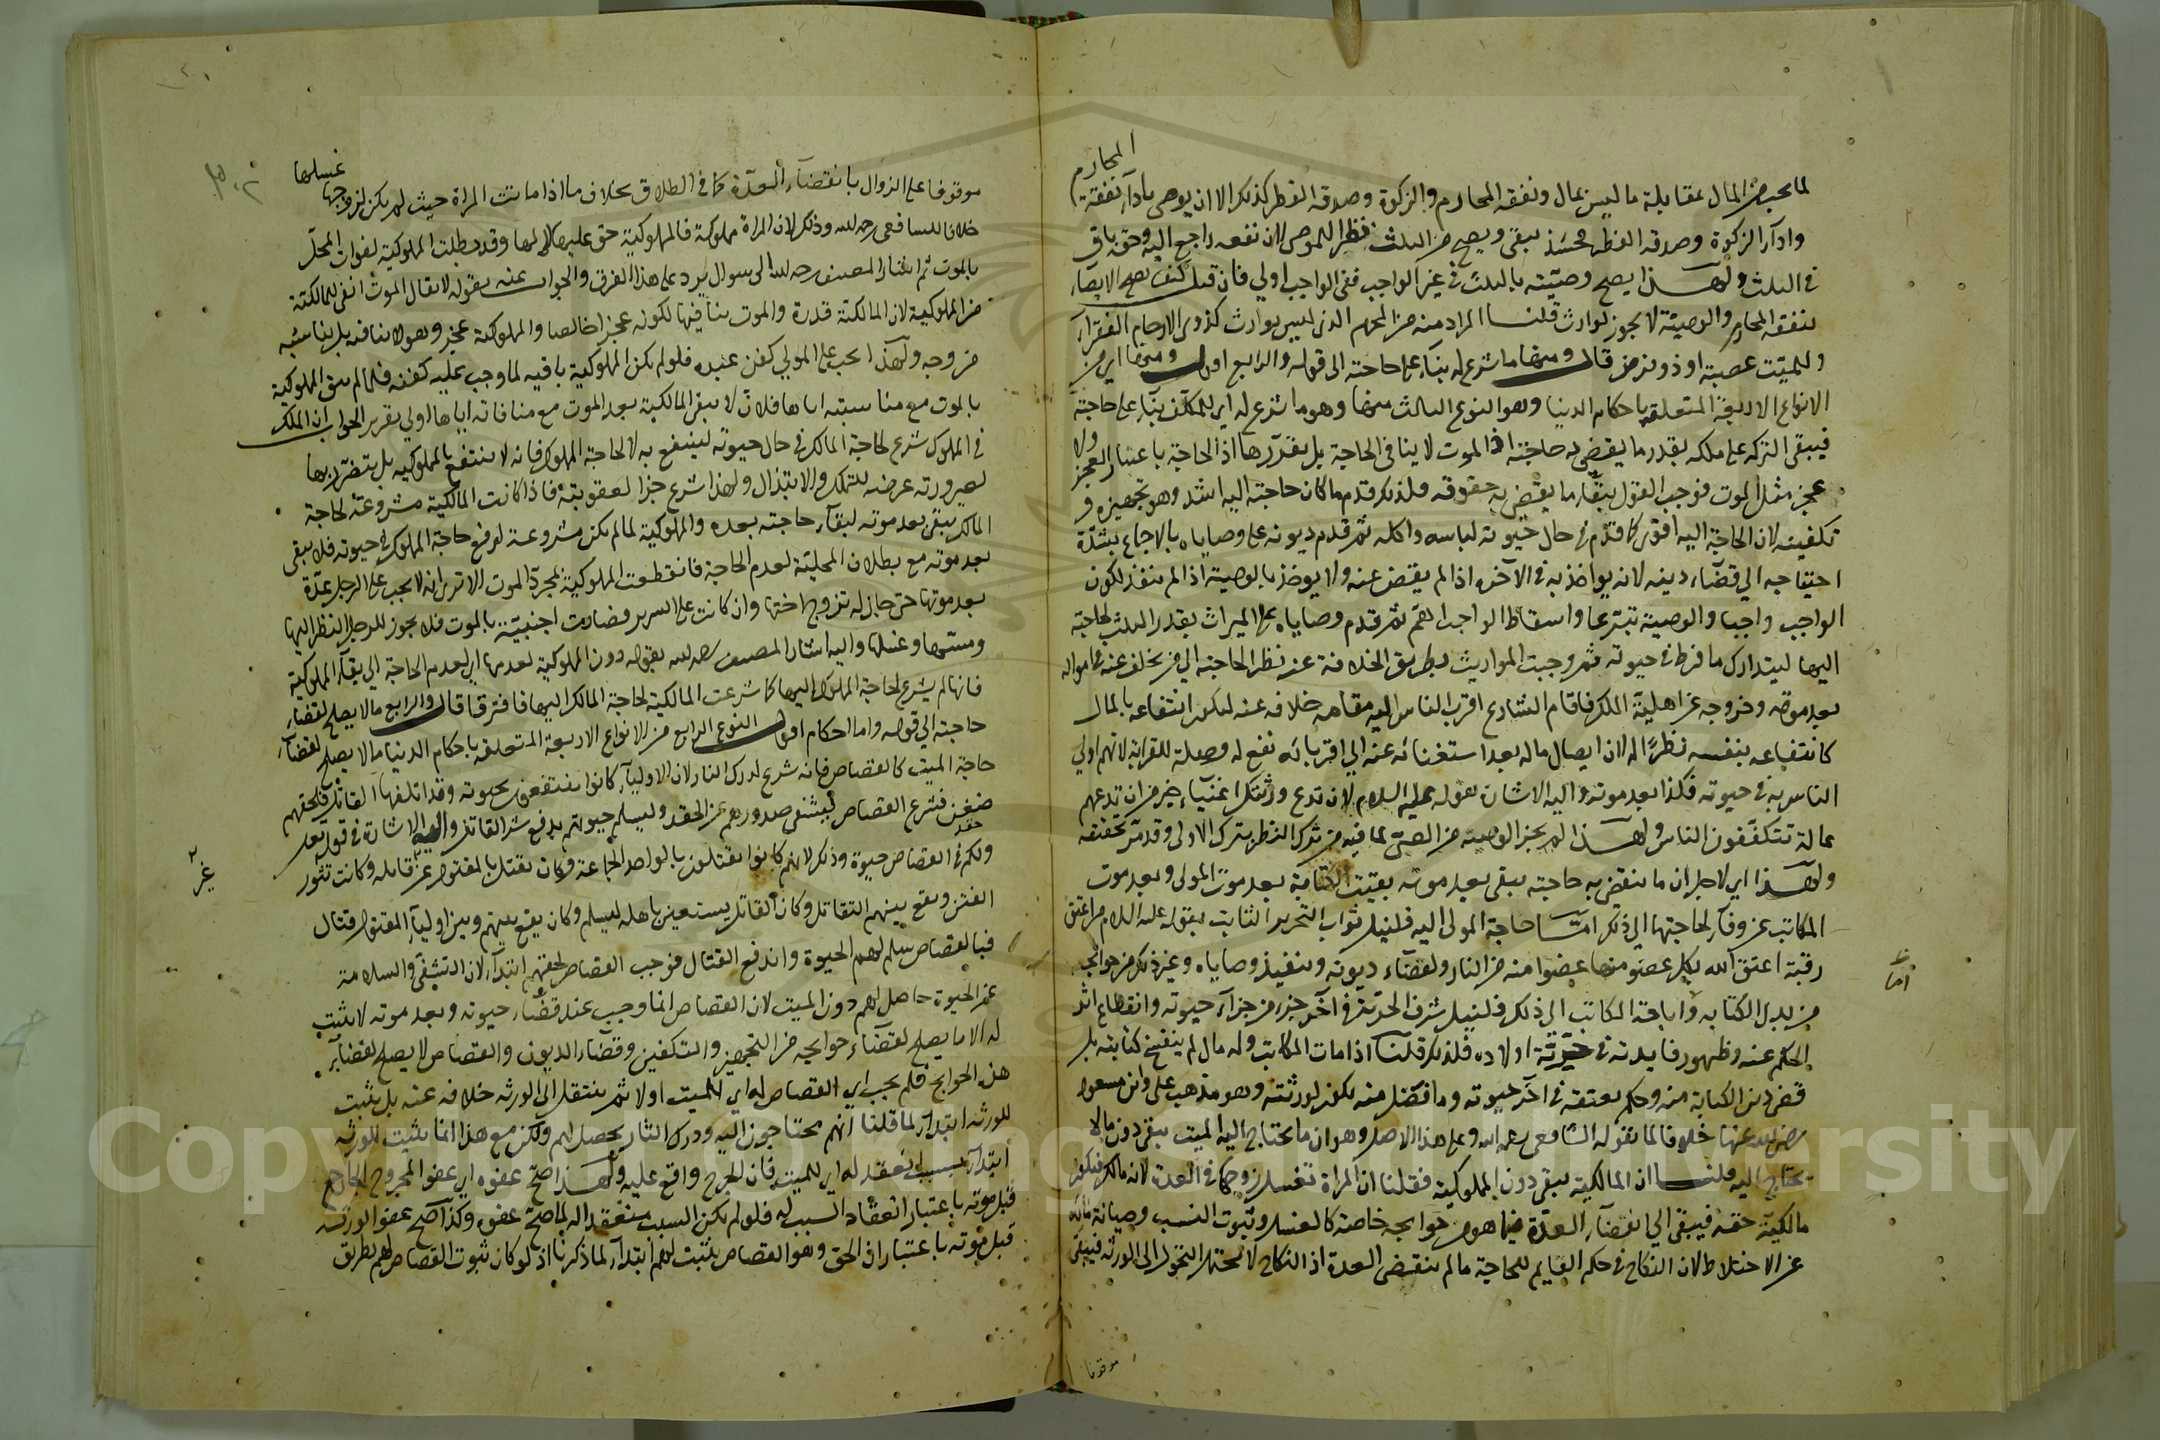 المحارم
لما يجب من المال بمقابلة ما ليس بمال ونفقة المحارم والزكوة وصدقة الفطر كذلك الا ان يوصى باداء نفقة
واداء الزكوة وصدقة الفطر فحينئذ يبقى ويصح من الثلث نظرا للموصى لان نفعه راجع اليه وحقه باق
في الثلث ولهذا يصح وصيته بالثلث في غير الواجب ففى الواجب اولى فان قيل كيف يصح الايصاء
بنفقة المحارم والوصية لا يجوز لوارث قلنا المراد منه من المحرم الذى ليس بوارث كذوى الارحام الفقراء
وللميت عصبة او ذو فرض قال ومنها ما شرع له بناء على حاجته الى قوله والرابع اقول ومنها اى من
الانواع الاربعة المتعلقة باحكام الدنيا وهو النوع الثالث منها وهو ما شرع له اى للمكلف بناء على حاجته
فيبقى التركة على ملكه بقدر ما يقضى به حاجته اذ الموت لا ينافى الحاجة بل يقررها اذ الحاجة باعتبار العجز ولا
عجز مثل الموت فوجب القول ببقاء ما يقضى به حقوقه فلذلك قدم ما كان حاجته اليه اشد وهو تجهيزه و
تكفينه لان الحاجة اليه اقوى كما قدم في حال حيوته لباسه واكله ثم قدم ديونه على وصاياه بالاجماع لشدة
احتياجه الى قضاء دينه لانه يواخذ به في الآخرة اذا لم يقض عنه ولا يوخذ بالوصية اذا لم ينفذ لكون
الواجب واجبا والوصية تبرعا واسقاط الواجب اهم ثم قدم وصاياه على الميراث بقدر الثلث لحاجته
اليها ليتدارك ما فرط في حيوته ثم وجبت المواريث بطريق الخلافة عنه نظرا لحاجته الى من يخلف عنه في امواله
بعد موته وخروجه عن اهلية الملك فاقام الشارع اقرب الناس اليه مقامه خلافة عنه ليكون انتفاعه بالمال
كانتفاعه بنفسه نظرا له لان ايصال ماله بعد استغنائه عنه الى اقربائه نفع له وصلة للقرابة لانهم اولى
الناس به في حيوته فكذا بعد موته واليه الاشارة بقوله عليه السلام لان تدع ورثتك اغنياء خير من ان تدعهم
عالة يتكففون الناس ولهذا لم يجز الوصية من الصبى لما فيه من ترك النظر بترك الاولى وقد مر تحقيقه
ولهذا اى لاجل ان ما يقضى به حاجته يبقى بعد موته بقيت الكتابة بعد موت المولى وبعد موت
المكاتب عن وفاء لحاجتهما الى ذلك اما حاجة المولى اليه فلنيل ثواب التحرير الثابت بقوله عليه السلام من اعتق
رقبة اعتق الله بكل عضو منها عضوا منه من النار ولقضاء ديونه وتنفيذ وصاياه وغير ذلك من حوائجه
من بدل الكتابة واما حاجة المكاتب الى ذلك فلنيل شرف الحرية في آخر جزء من اجزاء حيوته وانقطاع اثر
الحكم عنه وظهور فايدته في حرية اولاده فلذلك قلنا اذا مات المكاتب وله مال لم ينفسخ كتابته بل
قضى دين الكتابة منه وحكم بعتقه في آخر حيوته وما فضل منه يكون لورثته وهو مذهب على وابن مسعود
رضى الله عنهما خلافا لما يقوله الشافعى رحمه الله وعلى هذا الاصل وهو ان ما يحتاج اليه الميت يبقى دون ما لا
يحتاج اليه قلنا ان المالكية يبقى دون المملوكية فقلنا ان المراة تغسل زوجها في العدة لانه مالك فيكون
مالكية حقه فيبقى الى انقضاء العدة فيما هو من حوايجه خاصة كالغسل وثبوت النسب وصيانة مائه
عن الاختلاط لان النكاح في حكم القايم للحاجة ما لم ينقض العدة اذ النكاح لا يحتمل التحول الى الورثة فيبقى
موقوفا
امات
غسلها
موقوفا على الزوال بانقضاء العدة كما في الطلاق بخلاف ما اذا ماتت المراة حيث لم يكن لزوجها
خلافا للشافعى رحمه الله وذلك لان المراة مملوكة فالمملوكية حق عليها لا لها وقد بطلت المملوكية لفوات المحل
بالموت ثم اشار المصنف رحمه الله الى سوال يرد على هذا الفرق والجواب عنه بقوله لا يقال الموت انفى للمالكية
من المملوكية لان المالكية قدرة والموت ينافيها لكونه عجزا خالصا والمملوكية عجز وهو لا ينافيه بل يناسبه
من وجه ولهذا يجب على المولى كفن عبده فلو لم يكن المملوكية باقية لما وجب عليه كفنه فلما لم يبق المملوكية
بالموت مع مناسبته اياها فلان لا يبقى المالكية بعد الموت مع منافاته اياها اولى تقرير الجواب ان الملك
في المملوك شرع لحاجة المالك في حال حيوته لينتفع به لا لحاجة المملوك فانه لا ينتفع بالمملوكية بل يتضرر بها
لصيرورته عرضة للتملك والابتذال ولهذا شرع جزاء لعقوبته فاذا كانت المالكية مشروعة لحاجة
المالك يبقى بعد موته لبقاء حاجته بعده والمملوكية لما لم يكن مشروعة لدفع حاجة المملوك في حيوته فلا يبقى
بعد موته مع بطلان المحلية لعدم الحاجة فانقطعت المملوكية بمجرد الموت الا ترى انه لا يجب على الرجل عدة
بعد موتها حتى جاز له تزوج اختها وان كانت على السرير فصارت اجنبية بالموت فلا يجوز للرجل النظر اليها
ومسها وغسلها واليه اشار المصنف رحمه الله بقوله دون المملوكية لعدمها اى لعدم الحاجة الى بقاء المملوكية
فانها لم يشرع لحاجة المملوك اليها كما شرعت المالكية لحاجة المالك اليها فافترقا قال والرابع ما لا يصلح لقضاء
حاجته الى قوله واما احكام اقول النوع الرابع من الانواع الاربعة المتعلقة باحكام الدنيا ما لا يصلح لقضاء
حاجة الميت كالقصاص فانه شرع لدرك الثار لان الاولياء كانوا ينتفعون بحيوته وقد اتلفها القاتل فلحقهم
ضغن فشرع القصاص ليشفى صدورهم عن الحقد وليسلم حيوتهم بدفع شر القاتل واليه الاشارة في قوله تعالى
حقد
ولكم في القصاص حيوة وذلك لانهم كانوا يقتلون بالواحد الجماعة وكان يقتل بالمقتول غير قاتله وكانت تثور
الفتن ويقع بينهم التقاتل وكان القاتل يستعين باهله ليسلم وكان يقع بينهم وبين اولياء المقتول قتال
فبالقصاص سلم لهم الحيوة واندفع القتال فوجب القصاص لحقهم ابتداء لان التشفى والسلامة
عن الحيوة حاصل لهم دون الميت لان القصاص انما وجب عند قضاء حيوته وبعد موته لا يثبت
له الا ما يصلح لقضاء حوايجه من التجهيز والتكفين وقضاء الديون والقصاص لا يصلح لقضاء
هذه الحوايج فلم يجب اى القصاص له اى للميت اولا ثم ينتقل الى الورثة خلافة عنه بل يثبت
للورثة ابتداء لما قلنا انهم يحتاجون اليه ودرك الثار يحصل لهم ولكن مع هذا انما يثبت للورثة
ابتداء بسبب انعقد له اى للميت فان الجرح واقع عليه ولهذا صح عفوه اى عفو المجروح الجارح
قبل موته باعتبار انعقاد السبب له فلو لم يكن السبب منعقدا له لما صح عفوه وكذا صح عفو الورثة
قبل موته باعتبار ان الحق وهو القصاص يثبت لهم ابتداء لما ذكرنا اذ لو كان ثبوت القصاص لهم بطريق
غير
Copyright © King Saud University